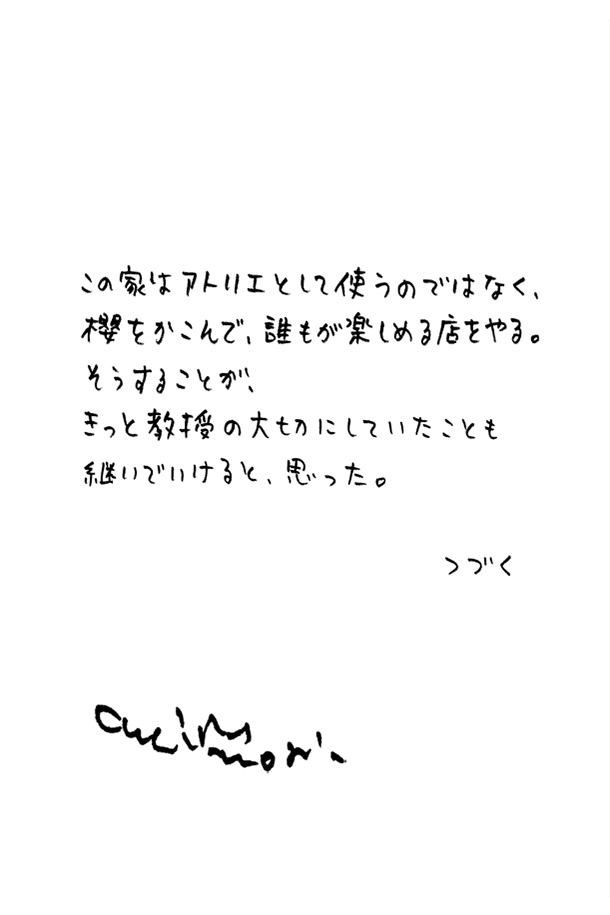 この家はアトリエとして使うのではなく、
櫻をかこんで、誰もが楽しめる店をやる。
そうすることが、
きっと教授の大切にしていたことも
継いでいけると、思った。
つづく